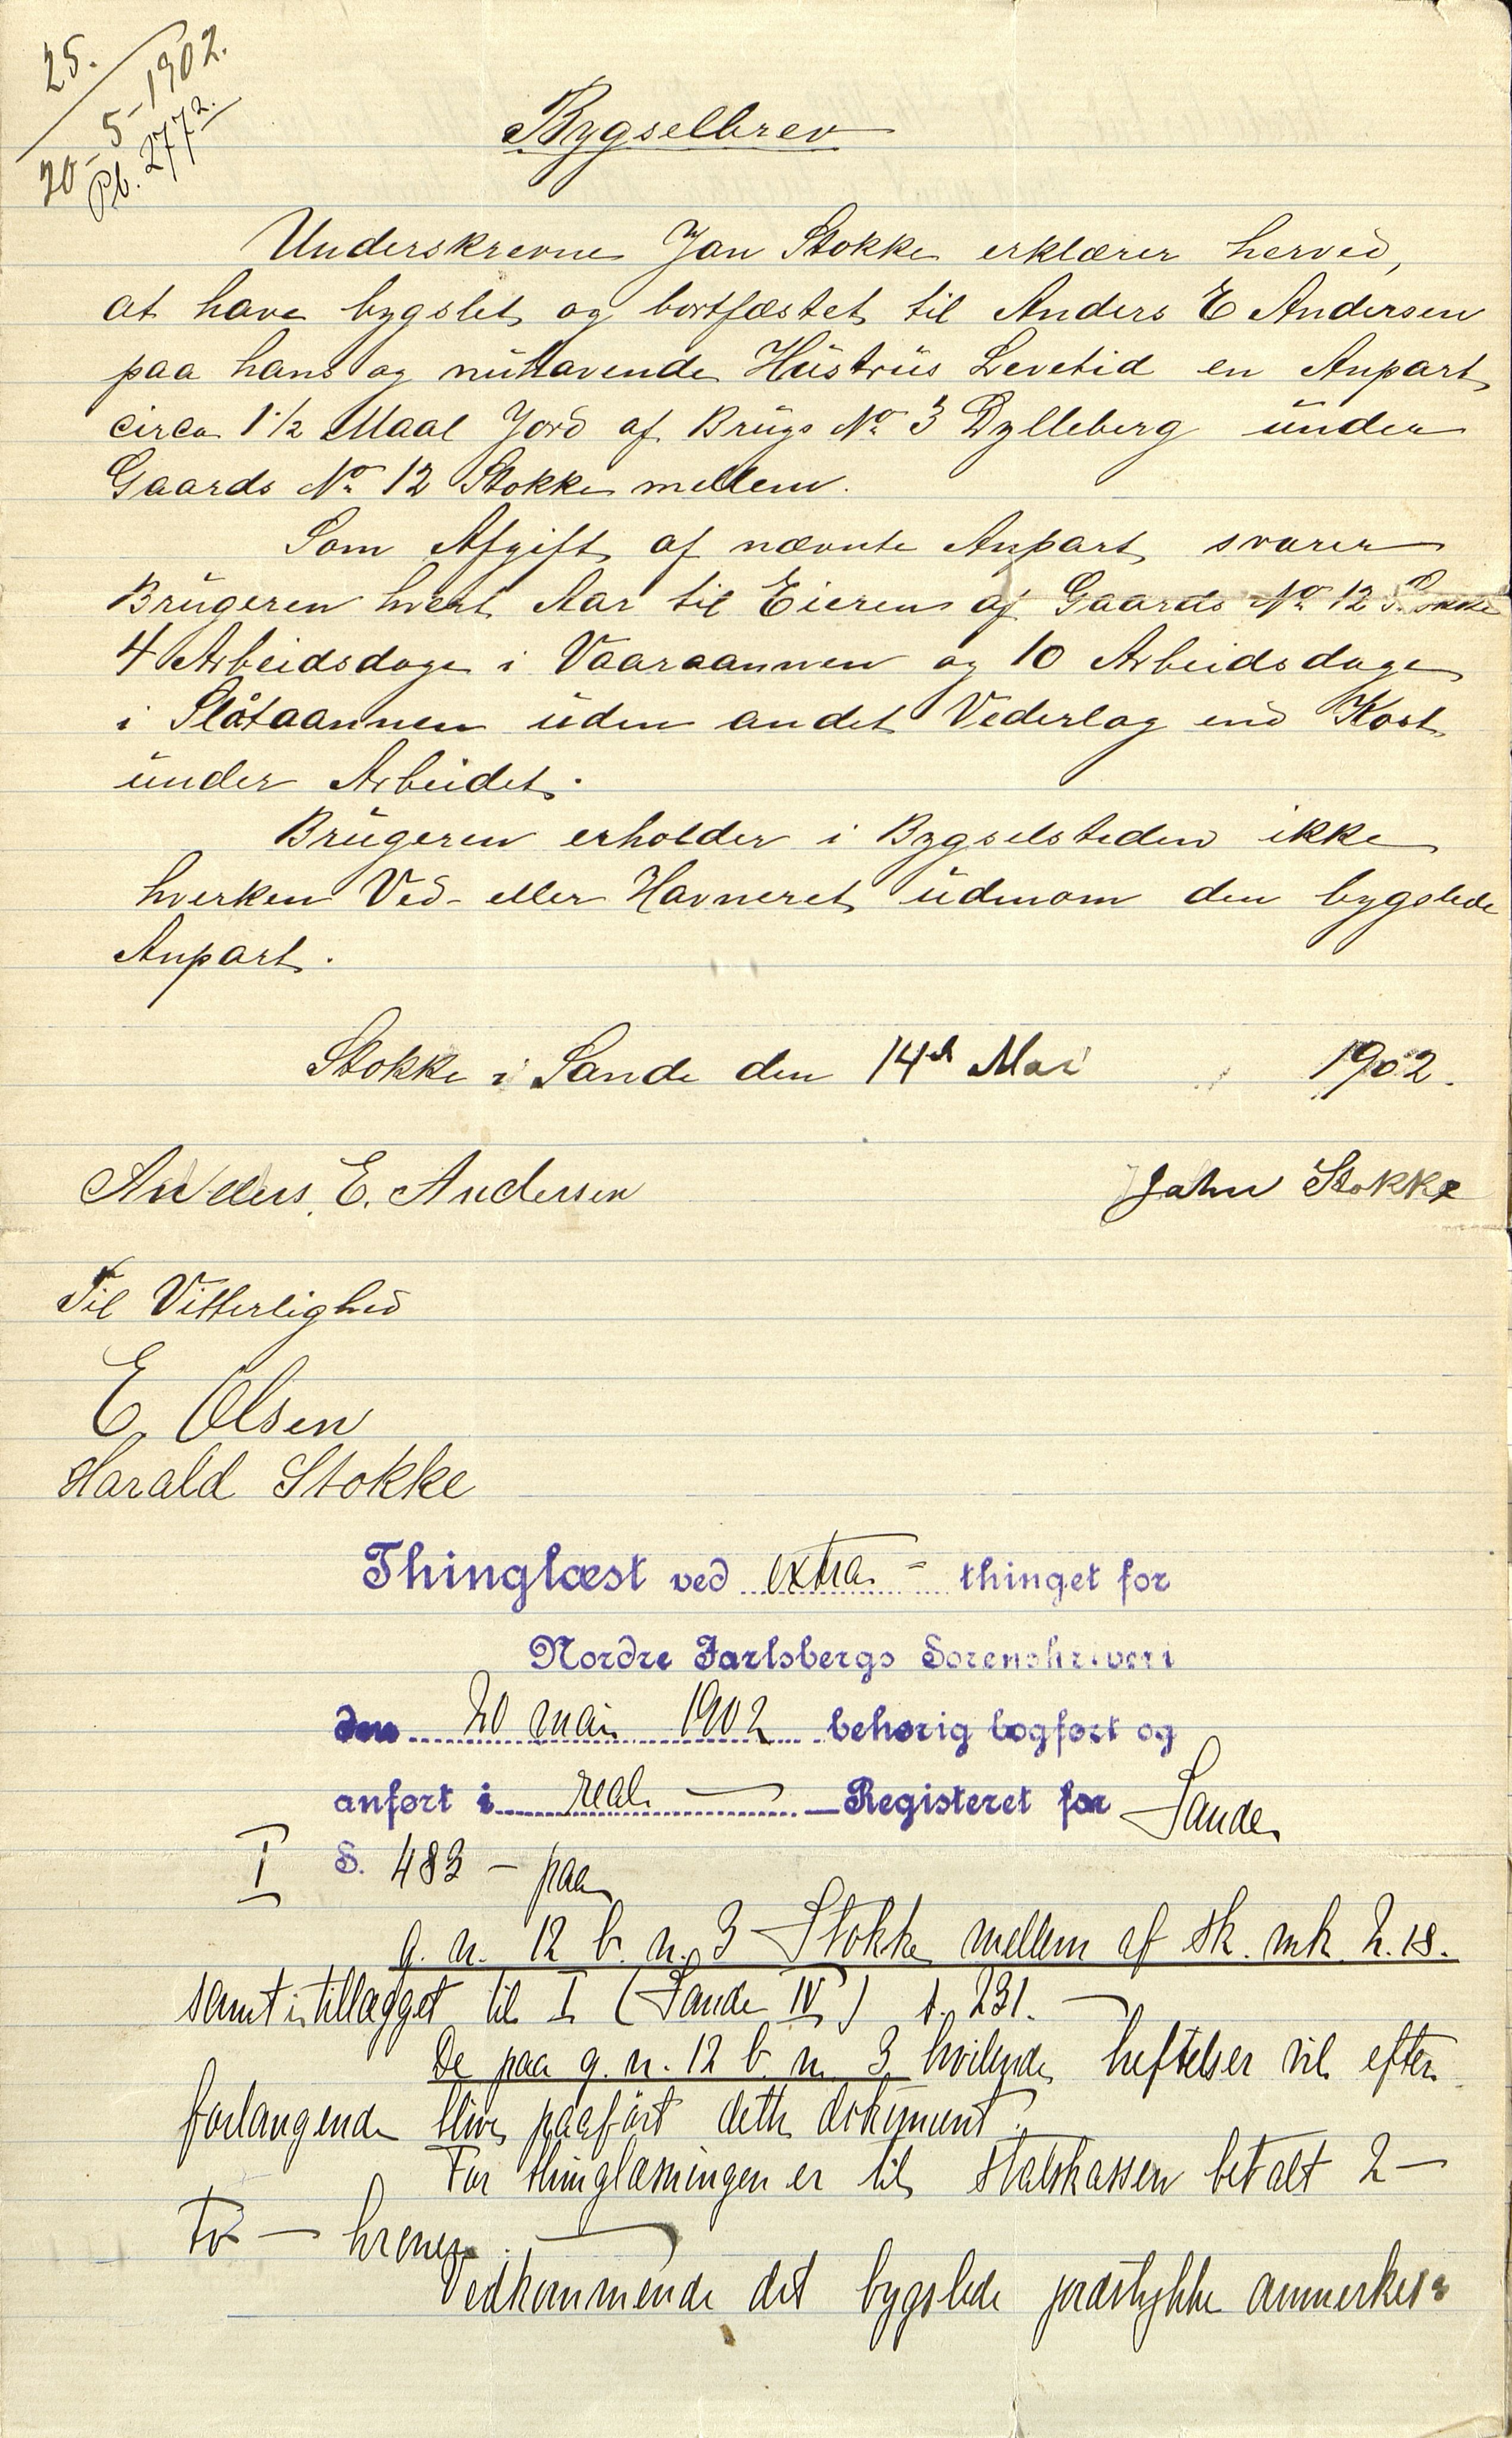 25.
20-5-1902.
Pb. 277 2.
Bygselbrev
Underskrevne Jan Stokke erklærer herved,
at have bygslet og bortfæstet til Anders E Andersen
paa hans og nuhavende Hustrus Levetid en Anpart
circa 1 1/2 Maal Jord af Brugs No 3 Dylleberg under
Gaards No 12 Stokke mellem.
Som Afgift af nævnte Anpart svarer
Brugeren hvert Aar til Eieren af Gaards No 12 Stokke
4 Arbeidsdage i Vaaraannen og 10 Arbeidsdage
i Slåtaannen uden andet Vederlag end Kost
under Arbeidet.
Brugeren erholder i Bygselstiden ikke
hverken Ved- eller Havneret udenom den bygslede
Anpart.
Stokke i Sande den 14de Mai 1902.
Anders. E. Andersen
Jahn Stokke
Til Vitterlighed
E. Olsen
Harald Stokke
Thinglæst ved extra- thinget for
Nordre Jarlsbergs Sorenskriveri
den 20 mai 1902 behørig bogført og
anført i real — Registeret for Sande
I S. 483 – paa
g. n. 12 b. n. 3 Stokke mellem af sk. mk. 2.18.
samt i tillægget til I (Sande IV) s. 231. —
De paa g. n. 12 b. n. 3 hvilende heftelser vil efter
forlangende blive paaført dette dokument.
For thinglæsningen er til statskassen betalt 2 —
to — kroner. —
Vedkommende det bygslede jordstykke anmerkes: